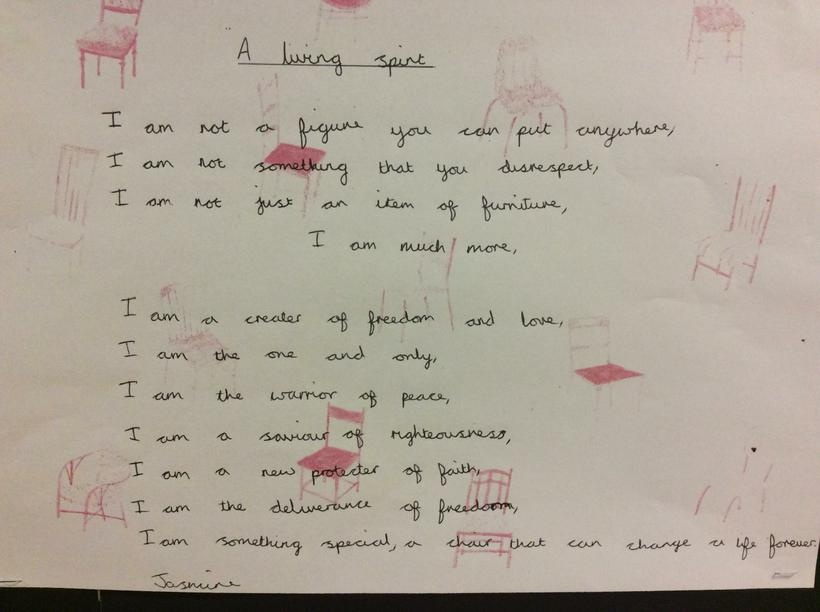 A living spirit
I am not a figure you can put anywhere,
I am not something that you disrespect,
I am not just an item of furniture,
I am much more,
I am a creater of freedom and love,
I am the one and only,
I am the warrior of peace,
I am a saviour of righteousness,
I am a new protecter of faith,
I am the deliverance of freedoom,
I am something special, a chair that can change a life forever.
Jasmine